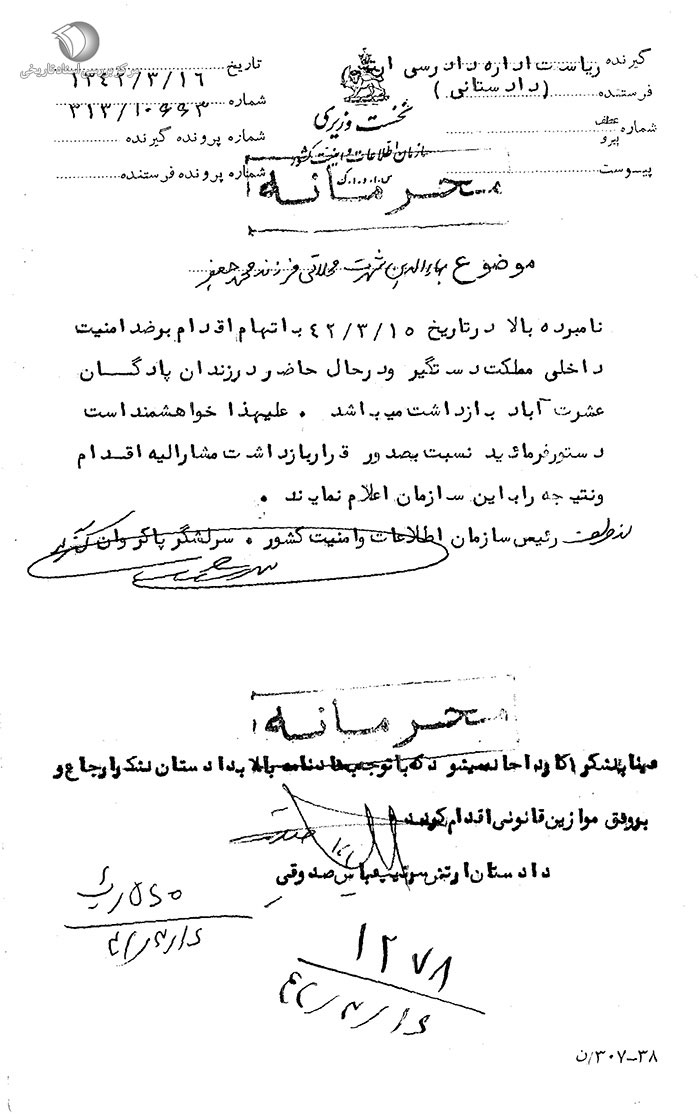 مرکز بررسی اسناد تاریخی
گیرنده ریاست اداره دادرسی ارتش
تاریخ ۱۳۴۲/۳/۱۶
فرستنده (دادستانی)
شماره ۳۱۳/۱۰۶۶۳
نخست وزیری
شماره عطف پیرو
شماره پرونده گیرنده
سازمان اطلاعات و امنیت کشور
پیوست
س.ا.و.ا.ک
شماره پرونده فرستنده
محرمانه
موضوع بهاءالدین شهرت محلاتی فرزند محمد جعفر
نامبرده بالا در تاریخ ۴۲/۳/۱۵ باتهام اقدام بر ضد امنیت
داخلی مملکت دستگیر و در حال حاضر در زندان پادگان
عشرت آباد بازداشت میباشد . علیهذا خواهشمند است
دستور فرمائید نسبت بصدور قرار بازداشت مشارالیه اقدام
و نتیجه را باین سازمان اعلام نمایند .
از طرف رئیس سازمان اطلاعات و امنیت کشور . سرلشگر پاکروان
محرمانه
عیناً بلشکر ۱ گارد احاله میشود که با توجه بمفاد نامه بالا بدادستان لشکر ارجاع و
بر وفق موازین قانونی اقدام کنند
دادستان ارتش سرتیپ عباس صدوقی
۱۲۷۸
۳۰۷-۳۸/ن